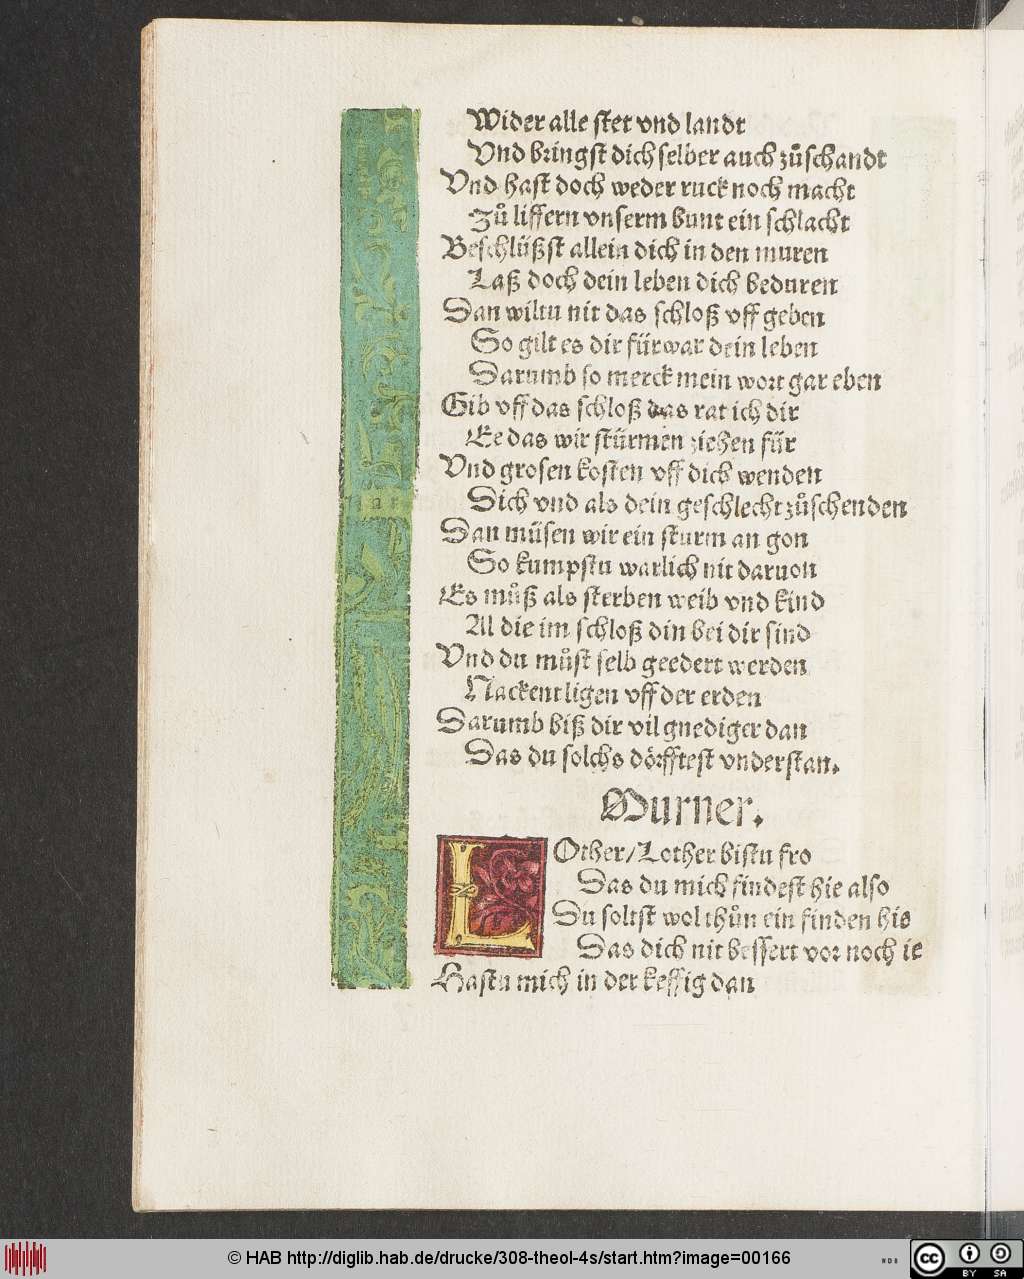 Wider alle stet vnd landt
Vnd bringst dich selber auch zůschandt
Vnd hast doch weder ruck noch macht
Zů liffern vnserm bunt ein schlacht
Beschlüßst allein dich in den muren
Laß doch dein leben dich beduren
Dan wiltu nit das schloß vff geben
So gilt es dir fürwar dein leben
Darumb so merck mein wort gar eben
Gib vff das schloß das rat ich dir
Ee das wir stürmen ziehen für
Vnd grosen kosten vff dich wenden
Dich vnd als dein geschlecht zůschenden
Dan müsen wir ein sturm an gon
So kumpstu warlich nit daruon
Es můß als sterben weib vnd kind
Al die im schloß din bei dir sind
Vnd du můst selb geedert werden
Nackent ligen vff der erden
Darumb biß dir vil gnediger dan
Das du solchs dörfftest vnderstan.
Murner.
LOther/Lother bistu fro
Das du mich findest hie also
Du soltst wol thůn ein finden hie
Das dich nit bessert vor noch ie
Hastu mich in der keffig dan
© HAB http://diglib.hab.de/drucke/308-theol-4s/start.htm?image=00166
WDB
cc BY SA